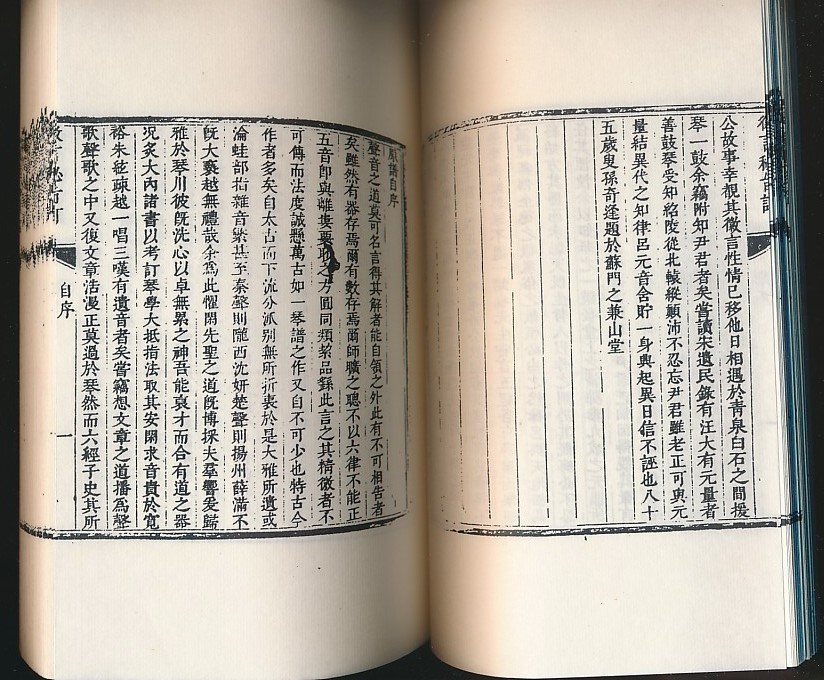 公故事幸覩其徽言性情已移他日相遇於靑泉白石之間援
琴一鼓余竊附知尹君者矣嘗讀宋遺民錄有汪大有元量者
善鼓琴受知紹陵從北轅縱顚沛不忍忘尹君雖老正可與元
量結異代之知律呂元音舍貯一身興起異日信不誣也八十
五歲叟孫奇逢題於蘇門之兼山堂
原譜自序
聲音之道莫可名言得其解者能自領之外此有不可相告者
矣雖然有器存焉爾有數存焉爾師曠之聰不以六律不能正
五音即與離婁之方圓同類
可傳而法度誠懸萬古如一琴譜之作又自不可少也特古今
作者多矣自太古而下流分派别無所折衷於是大雅所遺或
淪蛙部指雜音繁甚至秦聲則隴西沈妍楚聲則揚州薛滿不
旣大褻越無禮哉余爲此懼閑先聖之道旣博採夫羣響爰歸
雅於琴川彼旣洗心以卓無累之神吾能裒才而合有道之器
況炙大內諸書以考訂琴學大抵指法取其安閑求音貴於寬
裕朱絃疎越一唱三嘆有遺音者矣嘗竊想文章之道播爲聲
歌聲歌之中又復文章浩漫正莫過於琴然而六經子史其所
自序
一